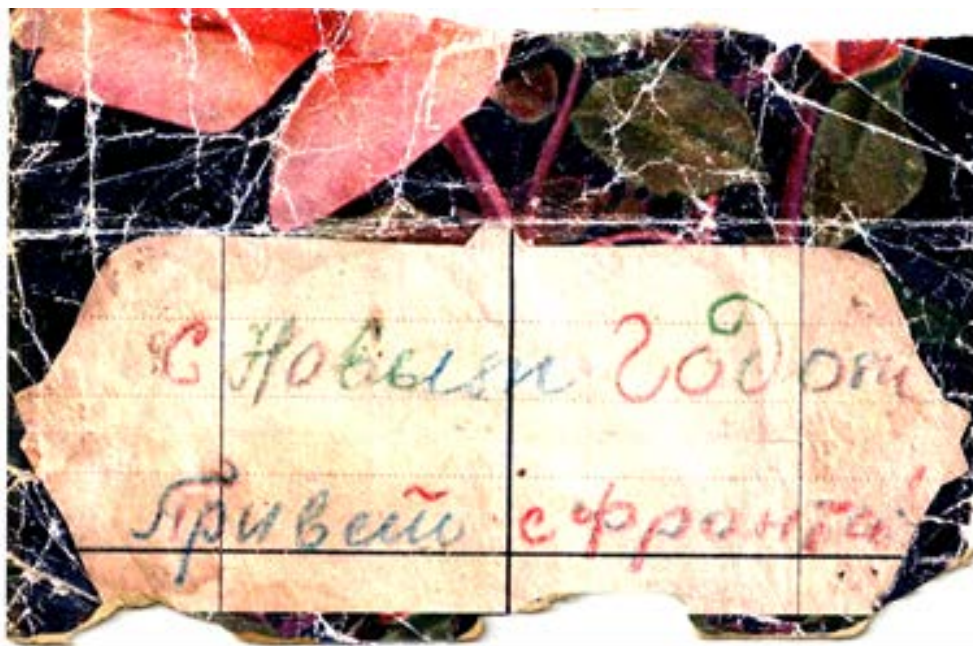 С Новым Годом
Привет с фронта!